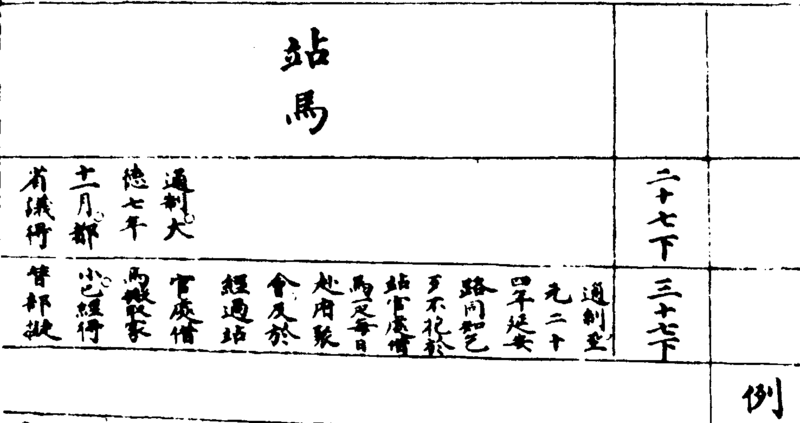 例
二十七下
三十七下
站馬
通制大
德七年
十一月都
省議得
通制至
元二十
四年延安
路同知乞
歹不花於
站官處借
馬一疋每日
赴府聚
會及於
經過站
官處借
馬搬取家
小已經得
替部擬